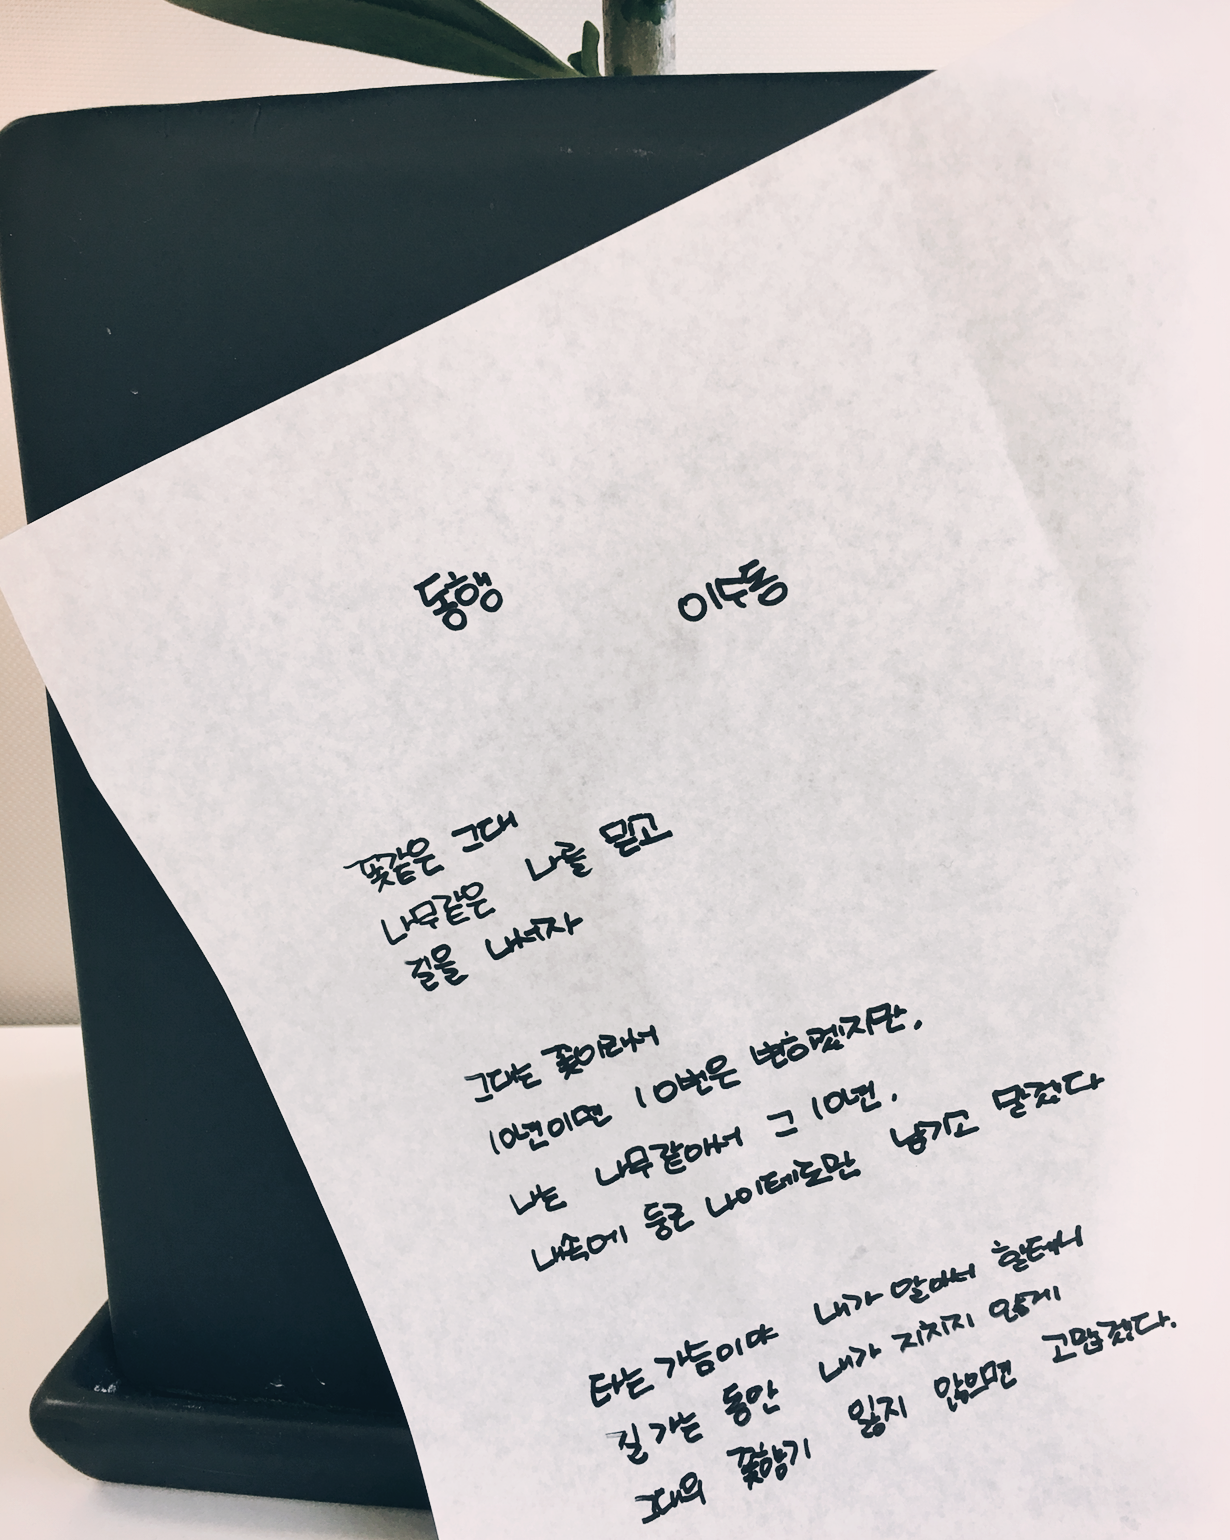 동행 이수동
꽃같은 그대
나무같은 나를 믿고
길을 나서자
그대는 꽃이라서
10년이면 10번은 변하겠지만,
나는 나무같아서 그 10년,
내속에 둥근 나이테로만 남기고 말겠다
타는 가슴이야 내가 알아서 할테니
길 가는 동안 내가 지치지 않게
그대의 꽃향기 잃지 않으면 고맙겠다.